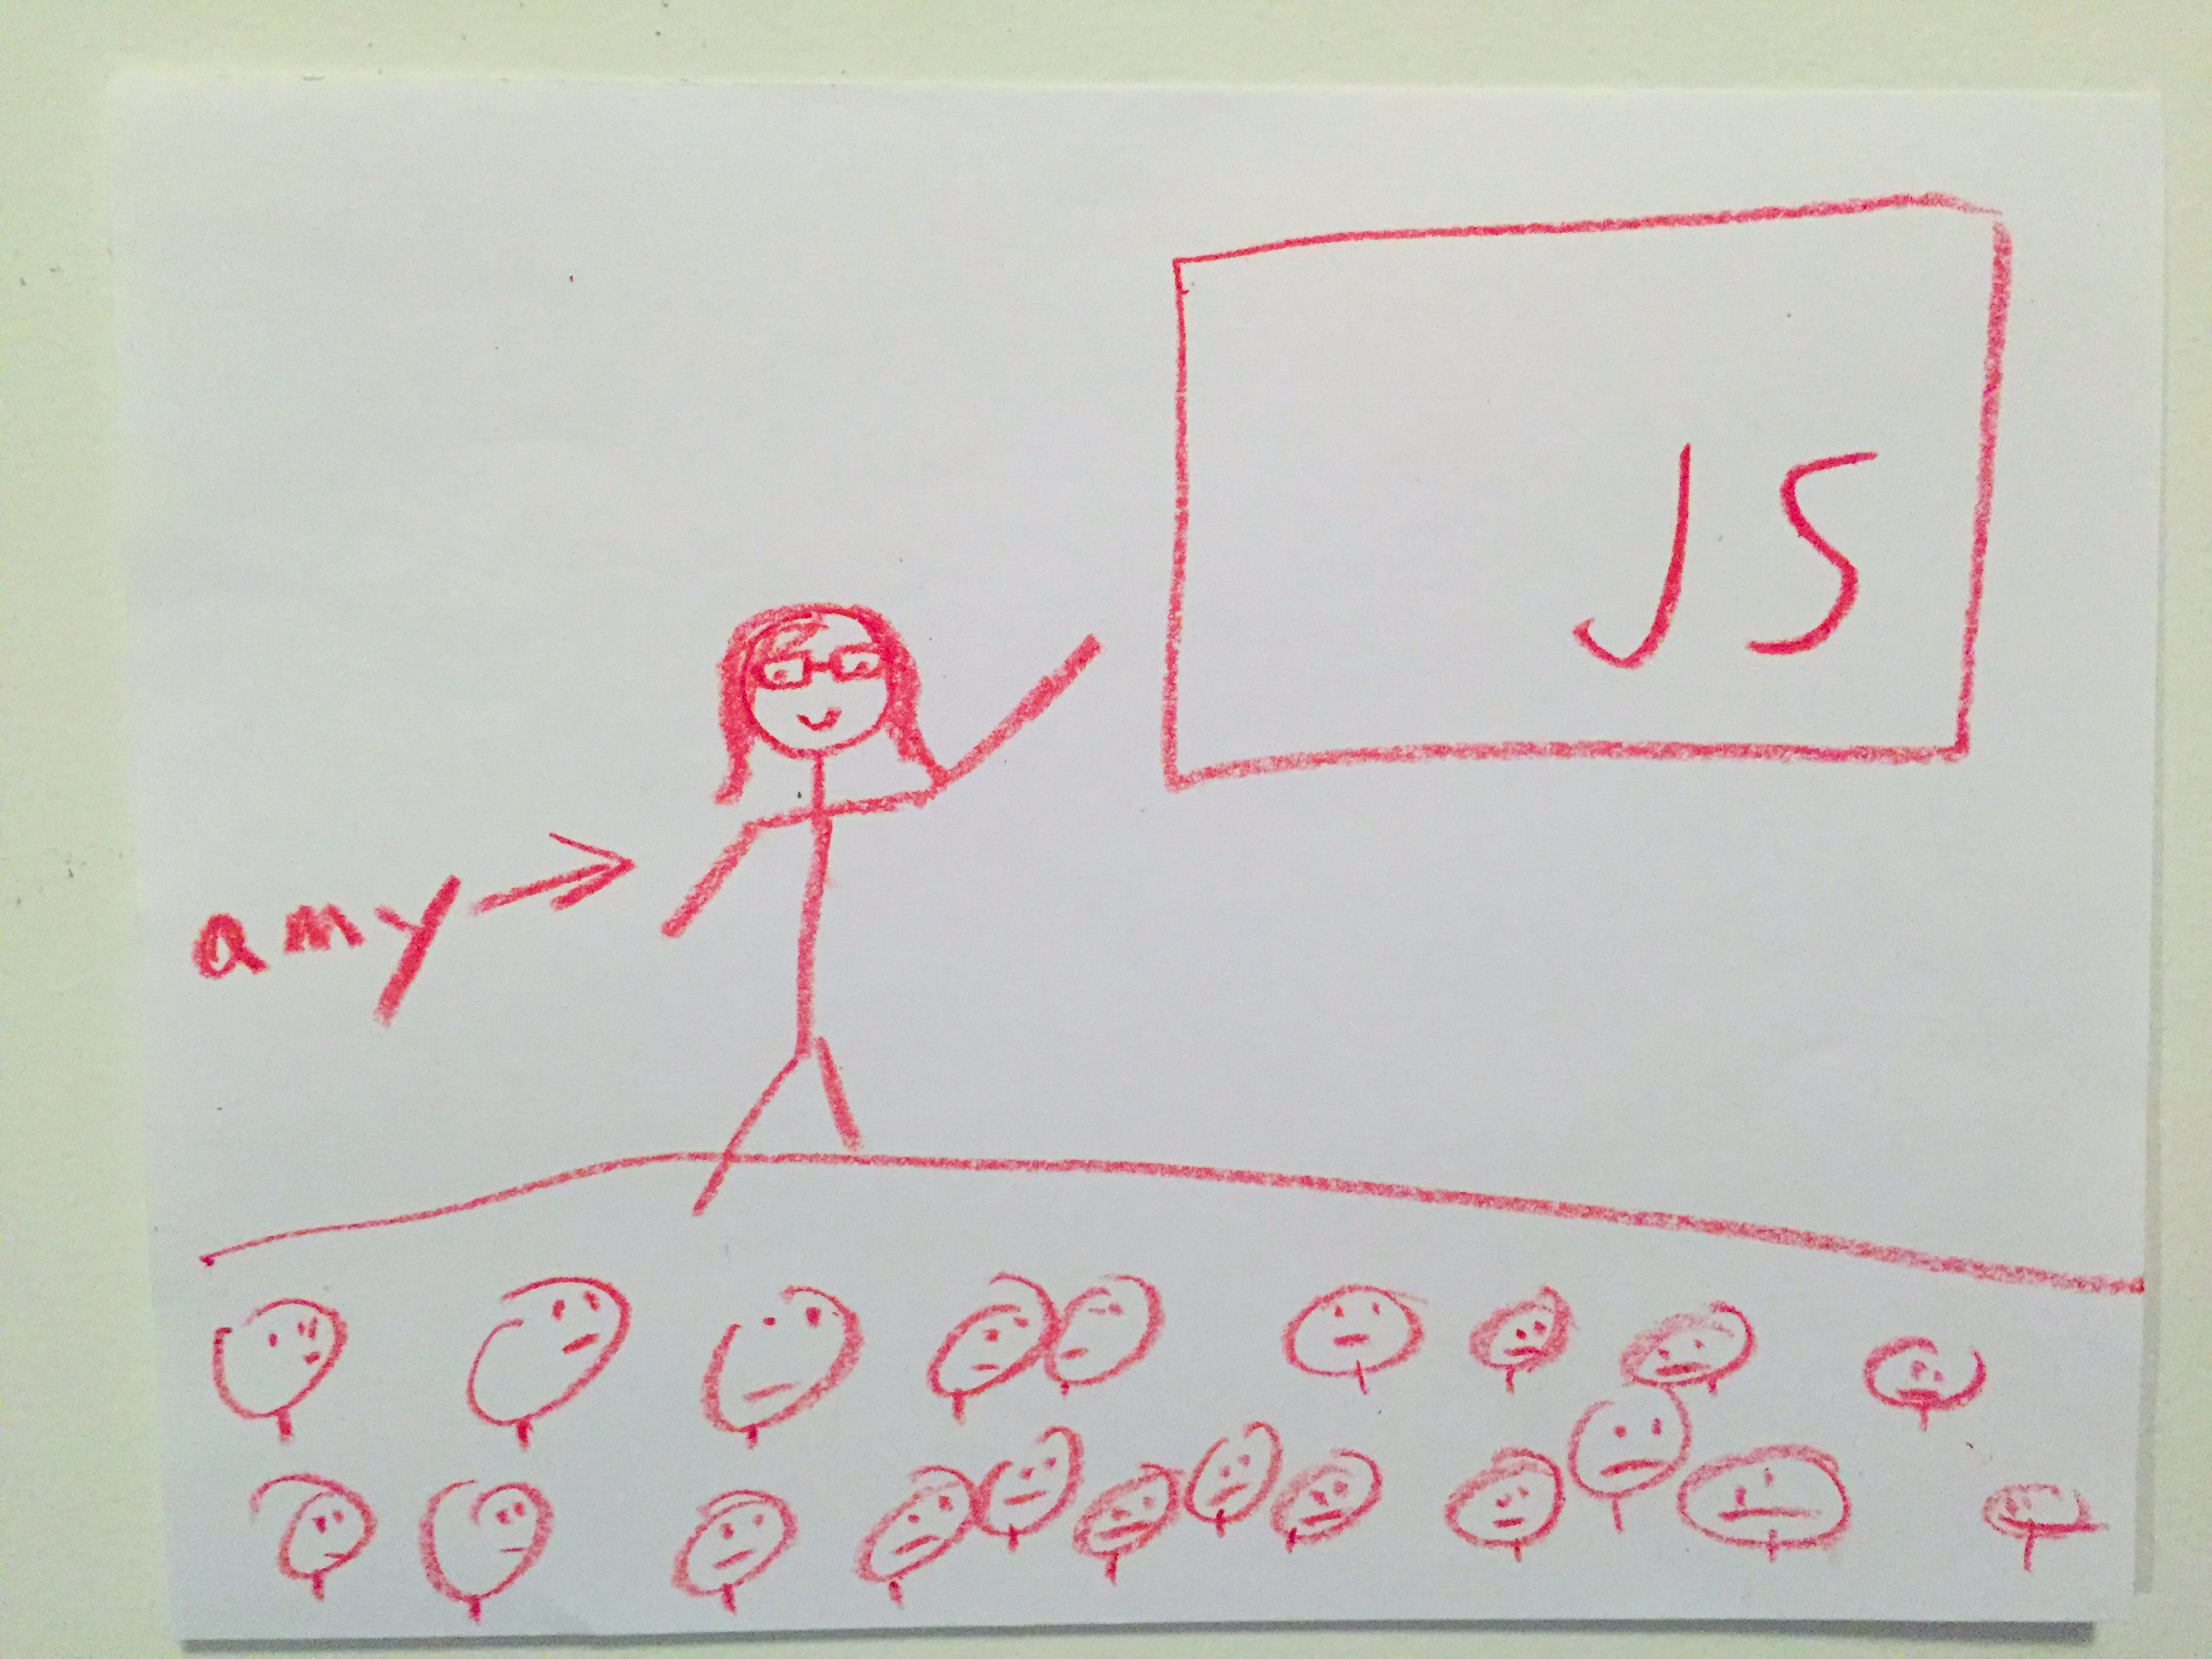 JS
amy